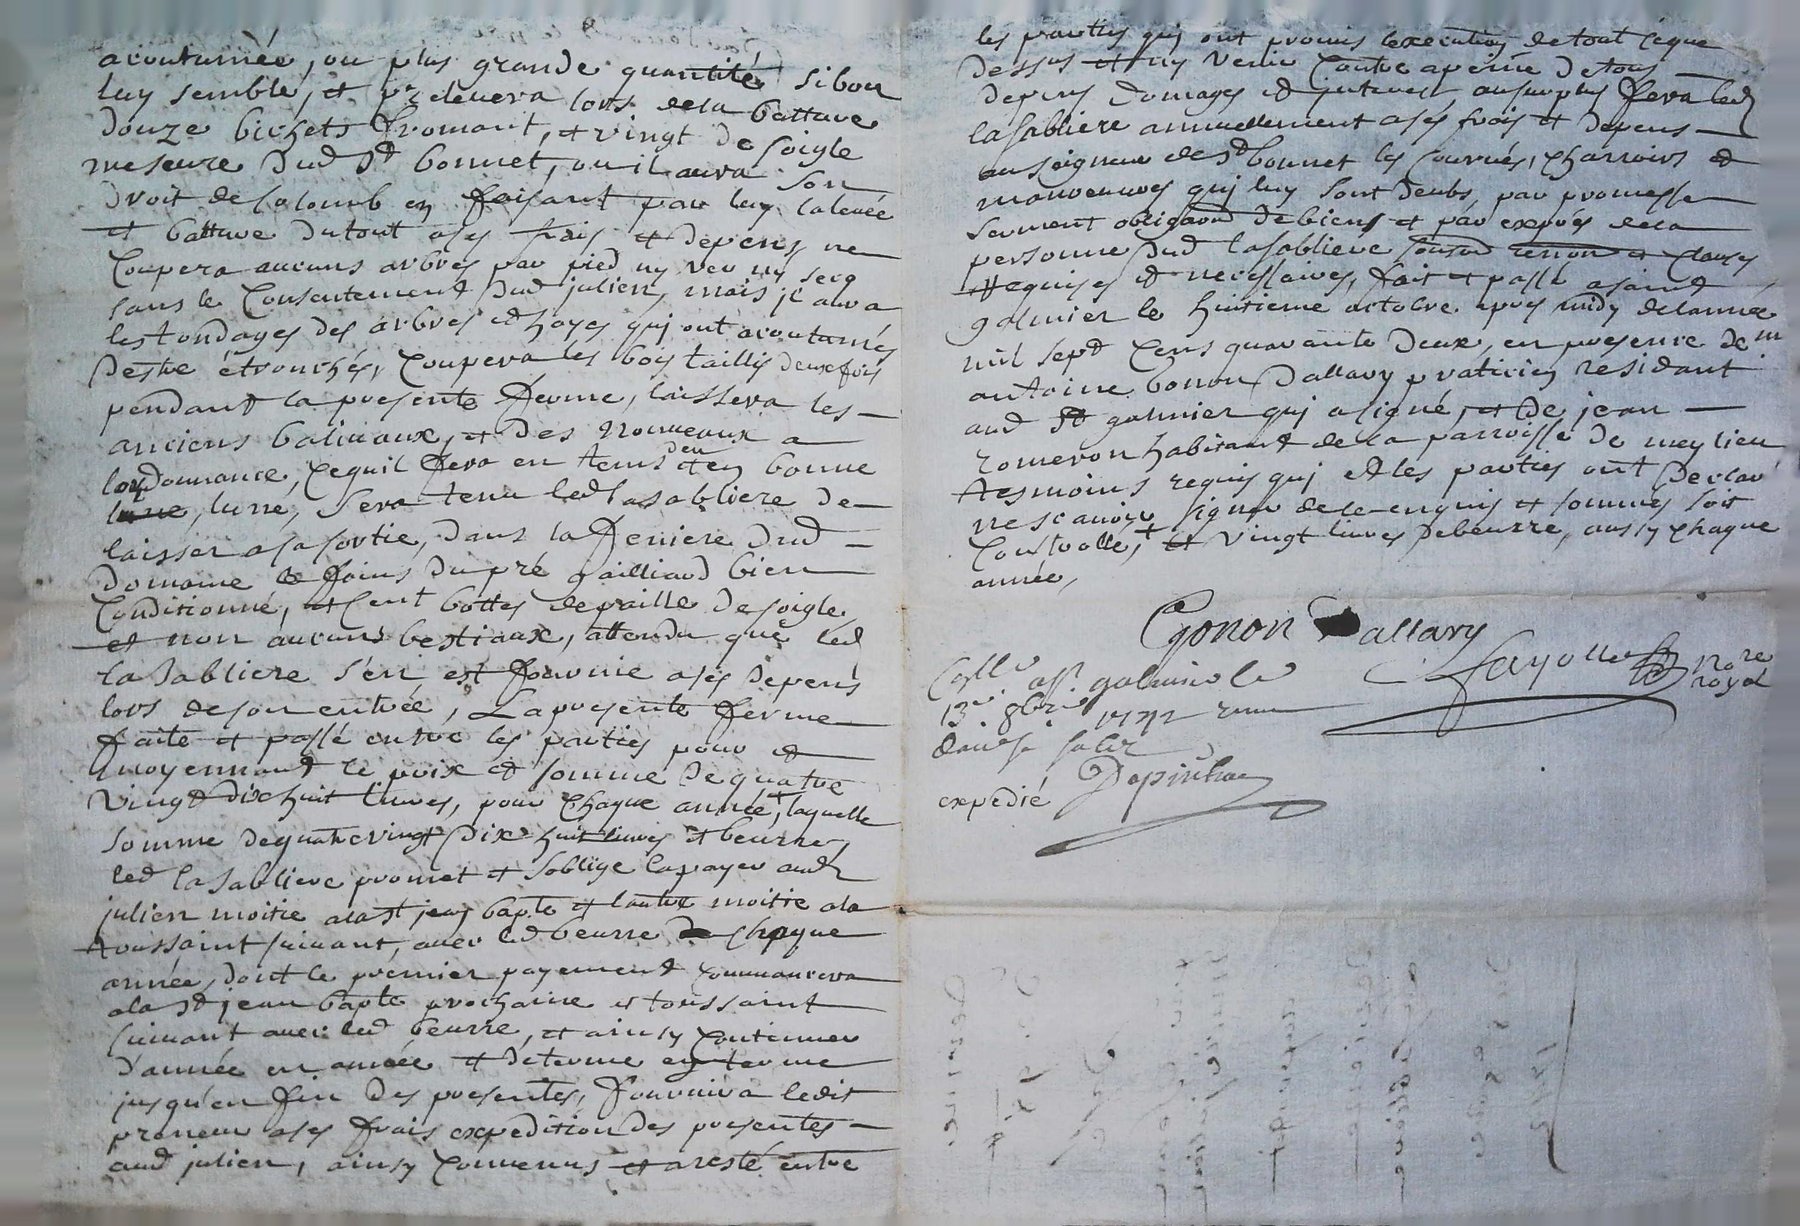 acoutumèe, ou plus grande quantité si bon
luy semble, et prelevera lors dela batture
douze bichets fromant, et vingt de soigle
mesure dud st bonnet, ou il aura son
droit de colomb en faisant par luy la levée
et batture du tout a ses frais et depens, ne
Coupera aucuns arbres par pied ny ver ny secq
sans le Consentement dud julien, mais il aura
les tondages des arbres et hayes qui ont acoutumés
destre étronchés, Coupera les bois taillis deux fois
pendant la presente ferme, laissera les
anciens balivaux, et des nouveaux a
lordonnance, Cequil fera en tems deu et en bonne
lune, sera tenu led lasabliere de
laisser asa sortie, dans la feniere dud
domaine le foins du pré gailliard bien
Conditionné, et Cent bottes de paille de soigle
et non aucuns bestiaux, attendu que led
la Sabliere s'en est fournie a ses depens
lors de son entrée, La presente ferme
faite et passé entre les parties pour et
moyennant le prix et somme de quatre
vingt dix huit livres, pour Chaque année, + laquelle
somme de quatre vingt dix huit livres et beurre,
led lasabliere promet et soblige la payer aud
julien moitie ala st jean bapte et lautre moitie ala
toussaint suivant, avec led beurre Chaque
année, dont le premier payement Commancera
ala st jean bapte prochaine et toussaint
suivant avec led beurre, et ainsy Continuer
d'année en année et de terme en terme
jusqu'en fin des presentes, fournira ledit
preneur a ses frais expedition des presentes
aud julien, ainsy Convenus et aresté entre
les parties qui ont promis lexecution de tout Ceque
dessus et ny venir Contre a peine de tous
depens domages et interest ausurplus fera led
lasabliere annuellement ases frois et depens
au seigneur de st bonnet les Courvées, Charrois et
manoeuvres qui luy sont deubs, par promesse
serment obligaon de biens et par exprés dela
personne dud lasabliere soumon renon et Clauses
requises et necessaires, fait et passé a saint
galmier le huitieme octobre apres midy delannée
mil sept Cens quarante deux, en presence de m
antoine Gonon dallary praticien residant
aud st galmier qui a signé, et de jean
romeron habitant de la parroisse de meylieu
tesmoins requis qui et les parties ont declaré
ne scavoir signer de ce enquis et sommés soit
Controllé, + et vingt livres de beurre, aussy Chaque
année,
Gonon Dallary
Fayolle Nore
royal
Collé a St galmier le
13e 8bre 1742
expedié